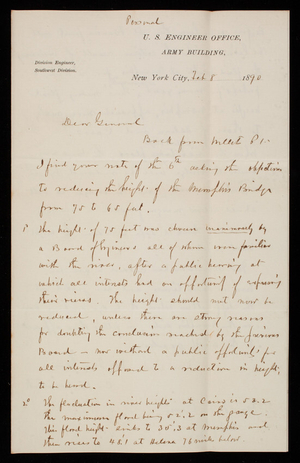 Personal
U. S. ENGINEER OFFICE,
ARMY BUILDING,
Division Engineer,
Southwest Division.
New York City, Feb 8 1890
Dear General
Back from Willets Pt.
I find your note of the 6th asking the objections
to reducing the height of the Memphis Bridge
from 75 to 65 feet.
1° The height of 75 feet was chosen unanimously by
a Board of Engineers all of whom were familiar
with the river, after a public hearing at
which all interests had an opportunity of expressing
their views. The height should not now be
reduced, unless there are strong reasons
for doubting the conclusion reached by the previous
Board – nor without a public opportunity for
all interests opposed to a reduction in height,
to be heard.
2° The fluctuation in river height at Cairo is 52.2
the maximum flood being 52.2 on the gauge.
This flood height sinks to 35.3 at Memphis and
then rises to 48.1 at Helena 76 mile below.